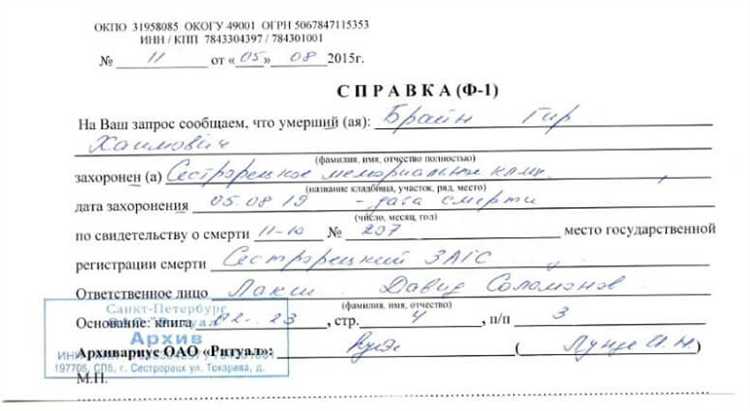 ОКПО 31958085 ОКОГУ 49001 ОГРН 5067847115353
ИНН / КПП 7843304397 / 784301001
№ 11 от «05» 08 2015г.
С П Р А В К А (Ф-1)
На Ваш запрос сообщаем, что умерший (ая): Брайн Гир
Хаимович
(фамилия, имя, отчество полностью)
захоронен (а) Сестрорецкое мемориальн
(название кладбища, участок, ряд, место)
дата захоронения 05 08 19 - дата смерти
(число, месяц, год)
по свидетельству о смерти 11-10 № 207 место государственной
регистрации смерти Сестрорецкий ЗАГС
Ответственное лицо Давид Соломонов
(фамилия, имя, отчество)
Санкт-Петербург
Основание: книга 02-23, стр. 4, п/п 3
Архив
Архивариус ОАО «Ритуал»:
197706, СПб, г. Сестрорецк ул. Токарева, д.
М.П.